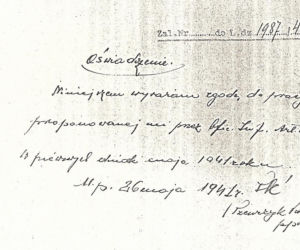 Zal.Nr........do L.dz 1987/4
Oświadczenie.
Niniejszem wyrażam zgodę do
proponowanej mi przez
w pierwszych dniach maja 1941 roku.
M.p. 26 maja 1941 r.